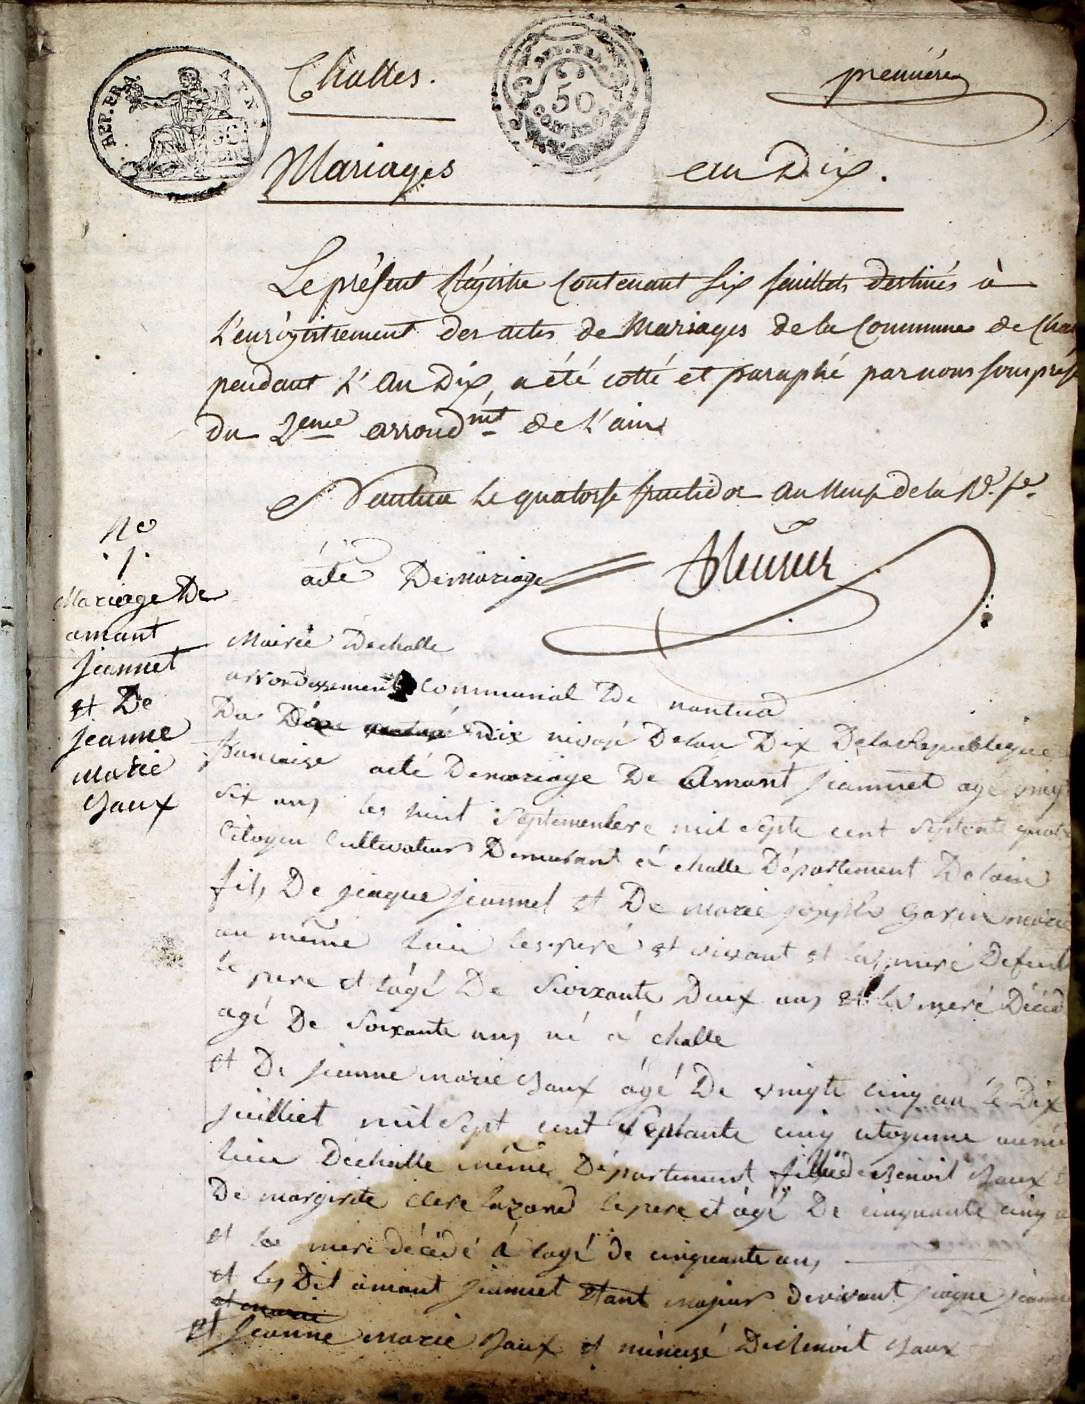 REP. FRA.
Challes.
REP. FRA.
50
CENTIMES
première
Mariages an Dix.
Le présent Régistre contenant six feuillets destinés à
l'enrégistrement des actes de Mariages de la Commune de Chal
pendant l'an Dix, a été cotté et paraphé par nous souspréf
du 2eme arrondmt de l'ain
Nantua le quatorse fructidor an neuf de la R. fe.
no
1.
Mariage De
amant
jeannet
et De
jeanne
marie
acte De mariage
Mairie Dechalle
arrondissement communal De nantua
Du dix nivosé Delan Dix Delarepublique
francaise acte Demariage De Amant jeannet age vingt
six ans les huit septembere mil septe cent septente quatre
citoyen cultivateur Demurant à challe Département Delain
fils De jaque jeannet et De marie josephe
au même lieu le peré et vivant et la meré Defun
le pere et l'agé De soixante Deux ans et la meré Décéd
agé De soixante ans né à challe
et De jeanne marie agé De vingte cinq an le Dix
juilliet mil sept cent septante cinq citoyenne
lieu Dechalle même Département fille de Benoit
De margirite clere le pere et agé De cinquante cinq a
et la mere décédé à l'agé de cinquante ans
et les Dit amant jeannet étant majeur jaque jeanne
et marie
et jeanne marie et mineuré De Benoit